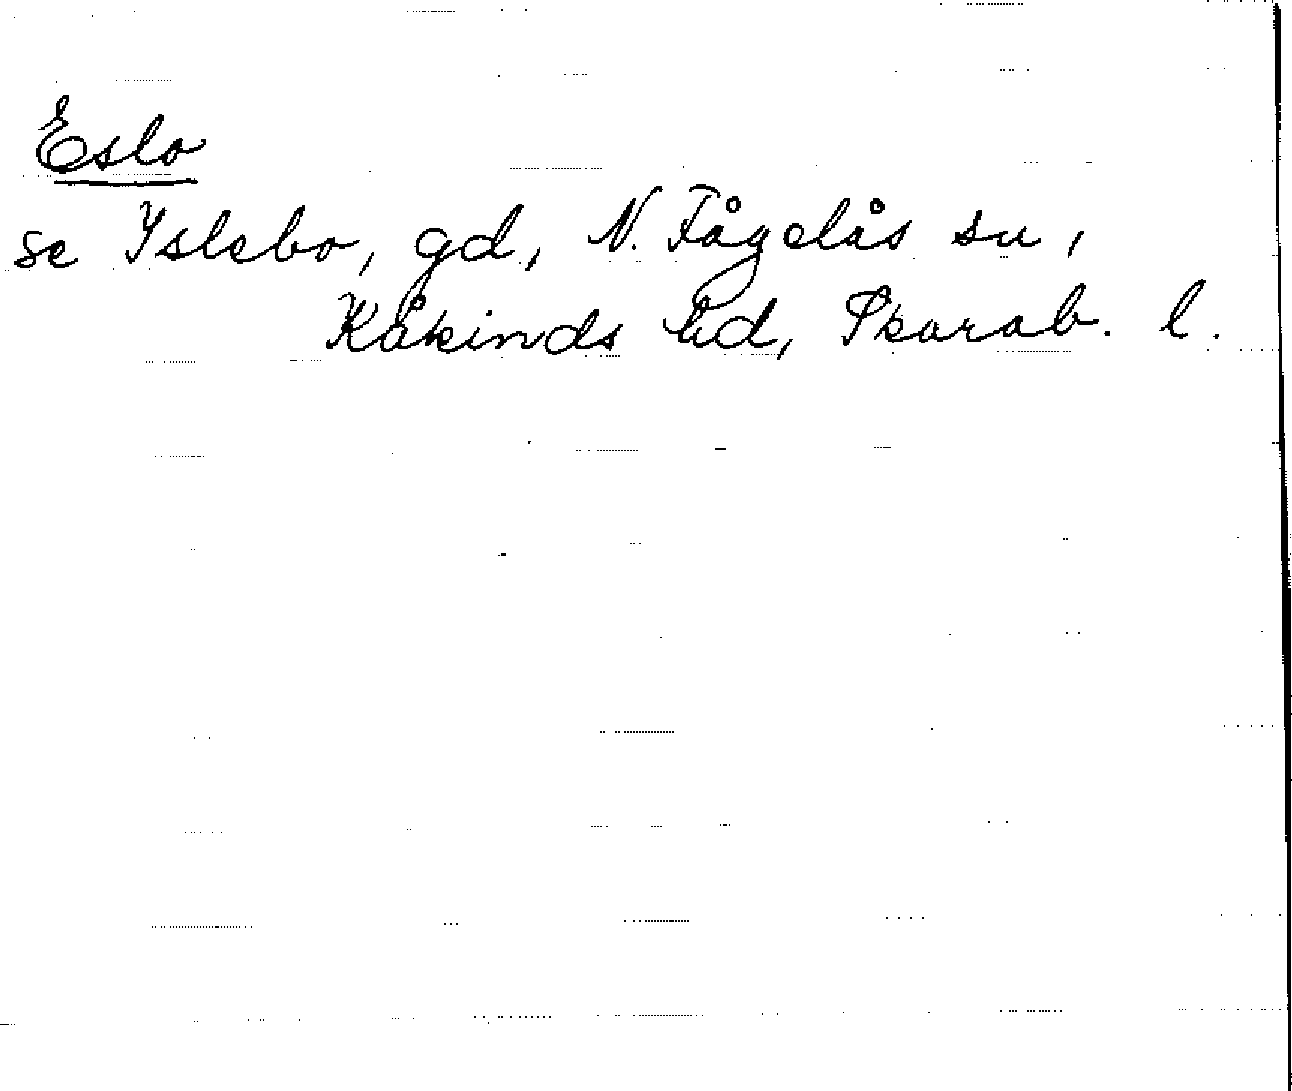 Eslo
se Yslebo, gd, N. Fågelås sn,
Kåkinds hd, Skarab. l.